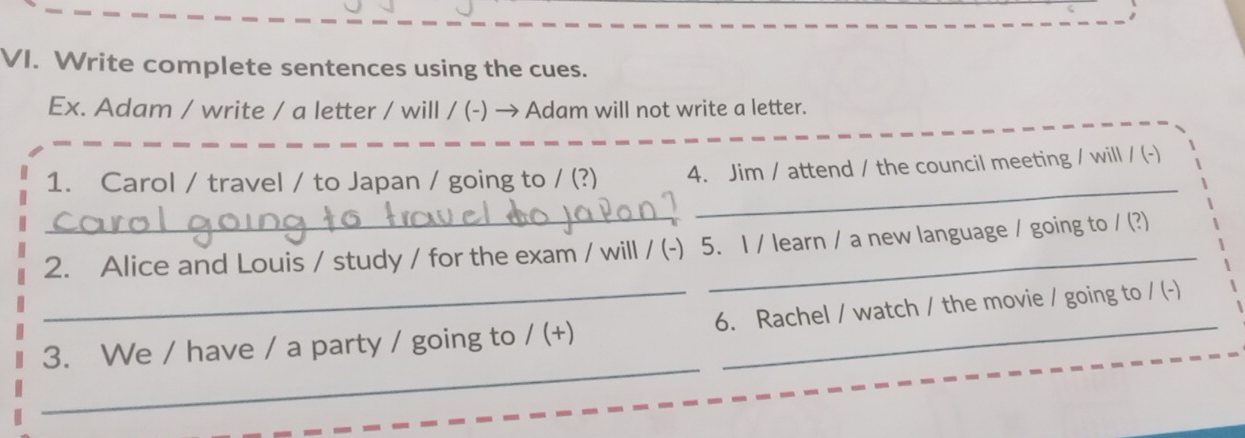 VI. Write complete sentences using the cues.
Ex. Adam / write / a letter / will / (-) → Adam will not write a letter.
1. Carol / travel / to Japan / going to / (?)
carol going to travel to japan?
2. Alice and Louis / study / for the exam / will / (-)
3. We / have / a party / going to / (+)
4. Jim / attend / the council meeting / will / (-)
5. I / learn / a new language / going to / (?)
6. Rachel / watch / the movie / going to / (-)